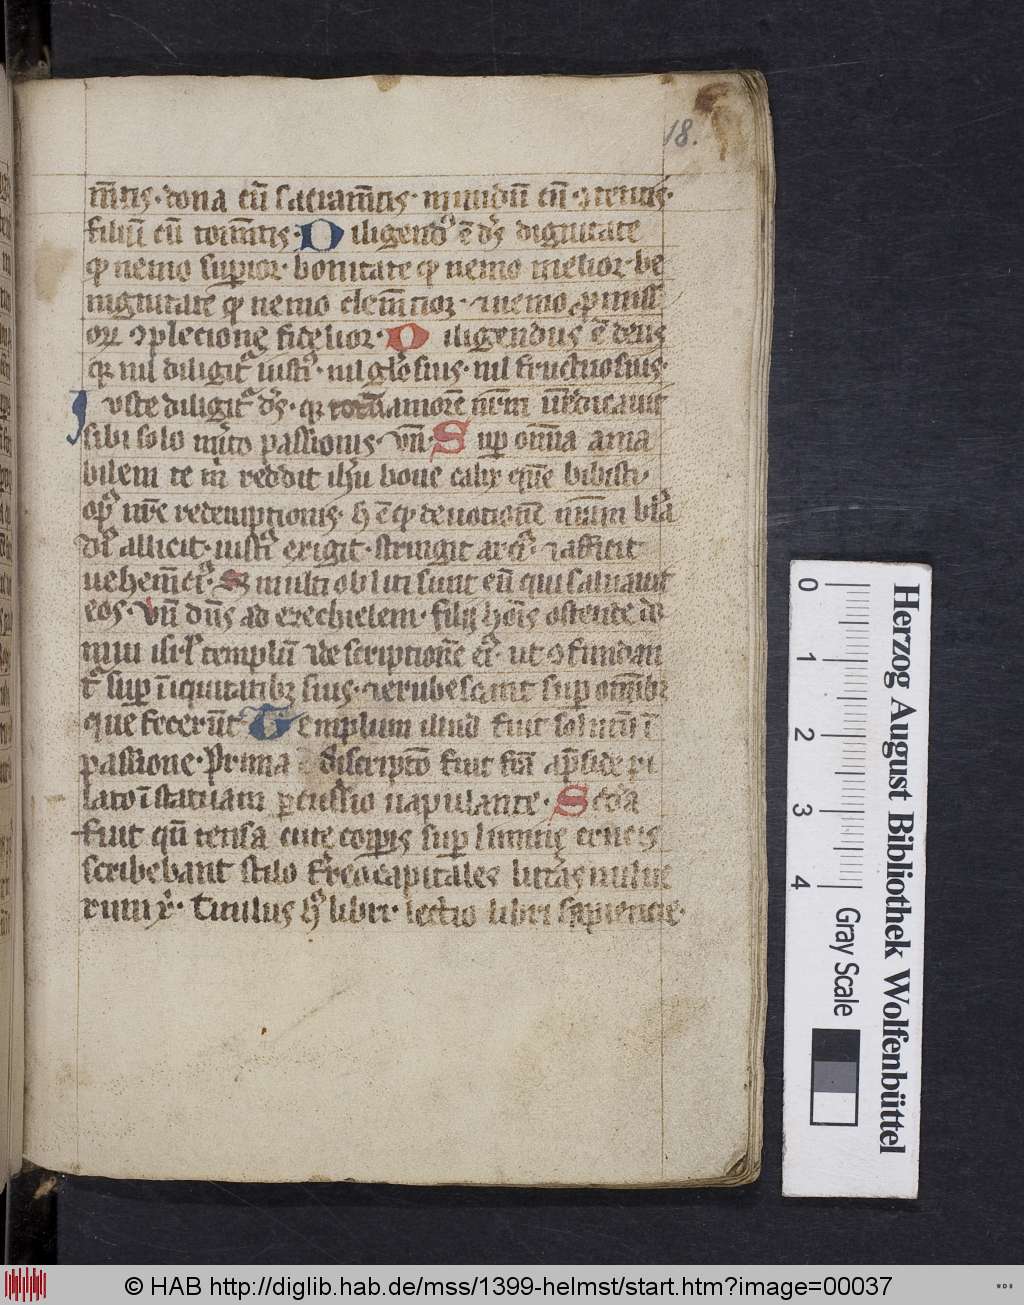 18.
m̅tis · dona cu̅ sacram̅tis · mundu̅ cu̅ ꝯtentis ·
filiu̅ cu̅ torm̅tis · Diligendꝰ e̅ dꝰs dignitate
qꝫ nemo superior · bonitate qꝫ nemo melior · be
nignitate qꝫ nemo clem̅cior · nemo ꝓmiss
oꝝ ꝯplecione fidelior · Diligendus e̅ deus
qꝛ nil diligitꝰ iustiꝰ · nil glo̅sius · nil fructuosius ·
Iuste diligitꝰ dꝰs · qꝛ amore̅ nr̅m ve̅dicauit
sibi solo m̅ito passionis · vn̅ · Suꝑ omn̅a ama
bilem te m̅ reddit ih̅u bone calix que̅ bibisti
opꝰ nr̅e redemptionis · h̅ e̅ qꝫ deuotione̅ nr̅am bla̅
dꝰ allicit · iustiꝰ exigit · stringit arciꝰ · afficit
uehem̅ciꝰ · S multi obliti sunt eu̅ qui saluauit
eos · Vn̅ dn̅s ad ezechielem · fili ho̅is ostende do
mui isrl̅ templu̅ descriptione̅ eiꝰ · ut ꝯfundan
tꝰ suꝑ i̅iquitatibꝫ suis · erubescant suꝑ omnibꝫ
que fecerūt Templum illud fuit solutu̅ i̅
passione · Prima discripto fuit ap̅side pi
lato i̅ statuam ꝑcussio napulante · Sc̅da
fuit qn̅ tensa cute corꝑis suꝑ lignu̅ crucis
scribebant stilo fe̅reo capitales litt̅as uulne
rum xꝰ · Titulus hꝰ libri · lectio libri sapiencie ·
0 1 2 3 4
Gray Scale
Herzog August Bibliothek Wolfenbüttel
© HAB http://diglib.hab.de/mss/1399-helmst/start.htm?image=00037